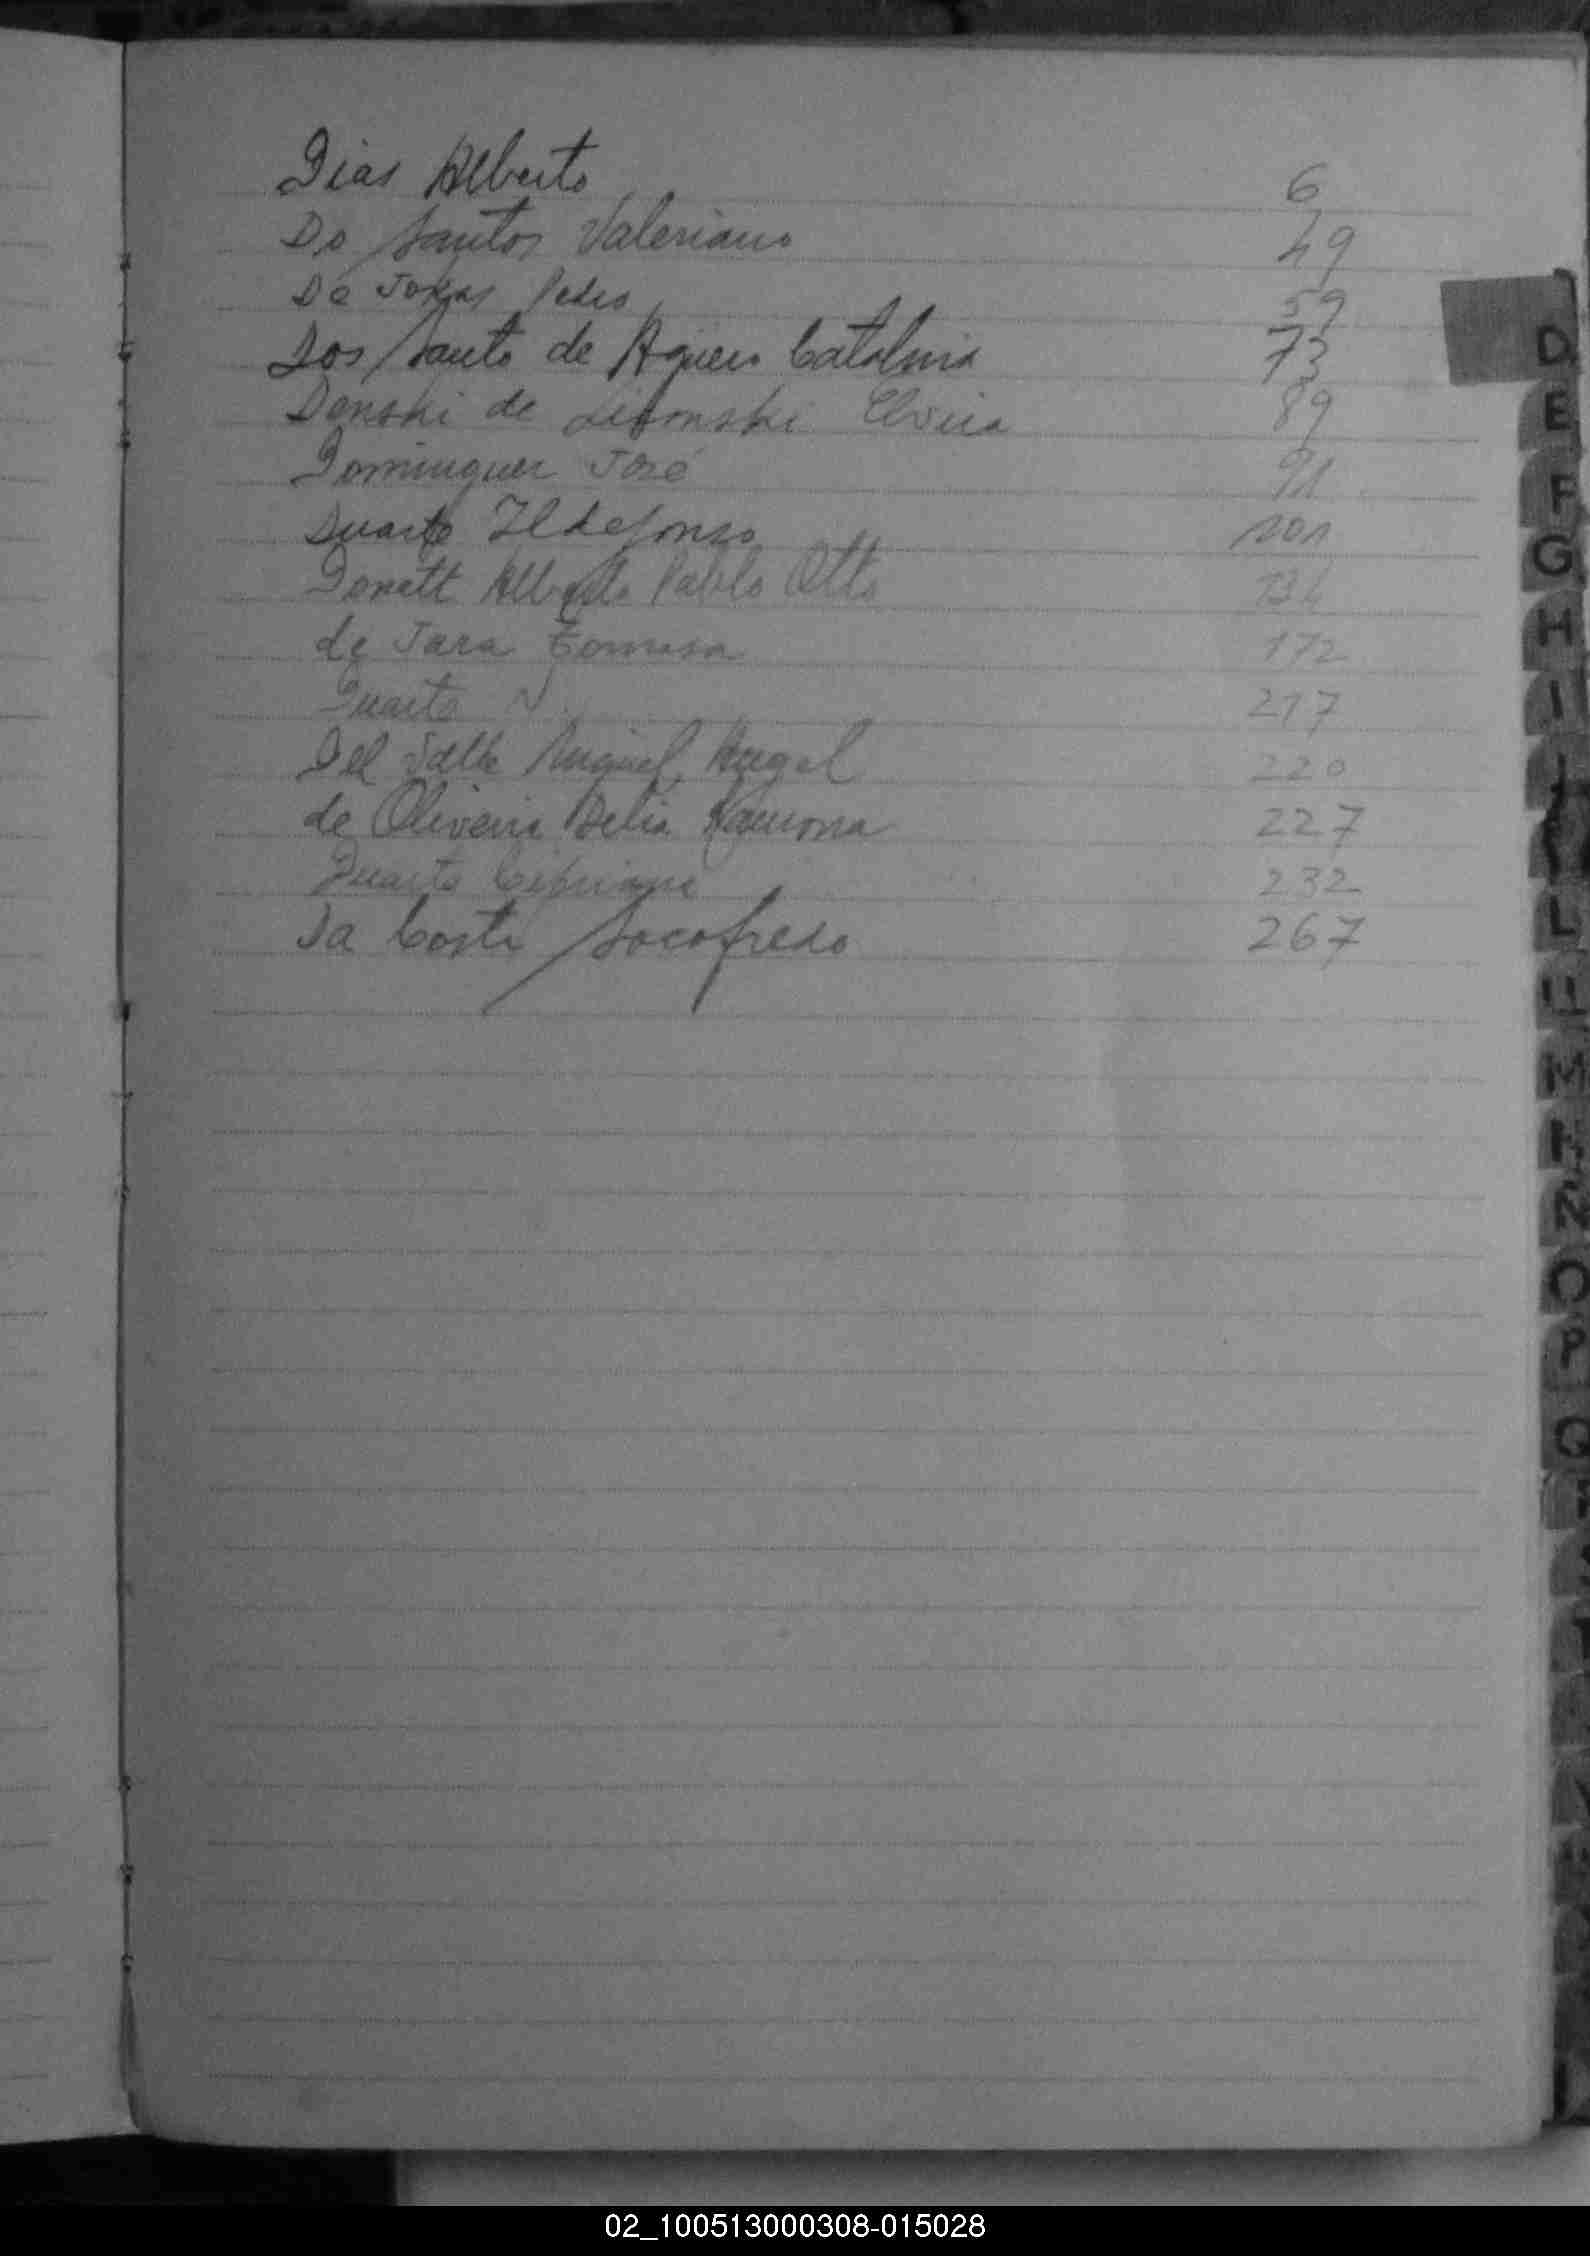 Dias Alberto 6
Do Santos Valeriano 49
De Jesus Pedro 59
Dos Santo de Aguero Catalina 73
Donski de Elvira 89
Dominguez José 91
Duarte Ildefonso 101
Donatt Alberto Pablo Otto 134
de Jara Tomasa 172
Duarte N. 217
Del Valle Miguel Angel 220
de Oliveira Delia Ramona 227
Duarte Cipriano 232
Da Costa Socofredo 267
D
E
F
G
H
I
J
L
M
N
O
P
Q
02_100513000308-015028